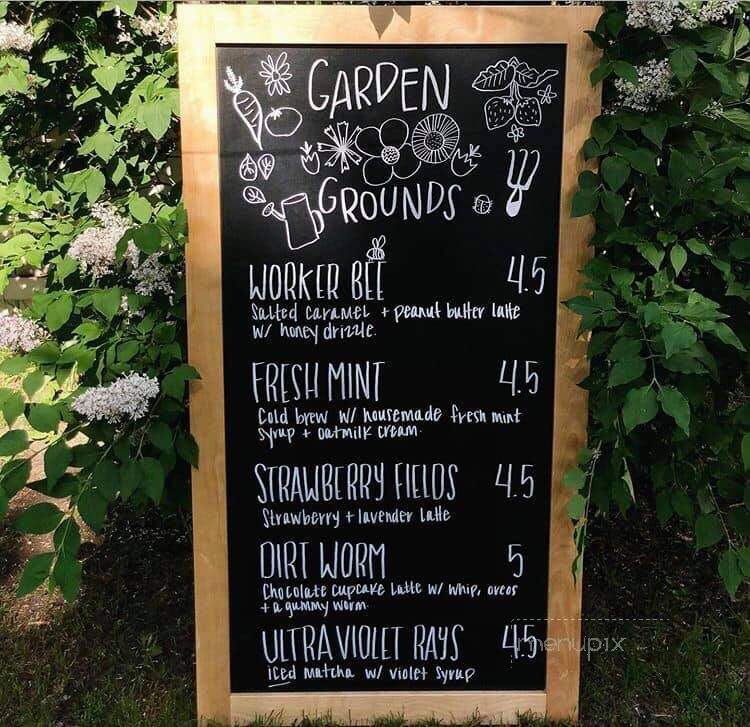 GARDEN
GROUNDS
WORKER BEE 4.5
Salted caramel + peanut butter latte
w/ honey drizzle.
FRESH MINT 4.5
Cold brew w/ housemade fresh mint
syrup + oatmilk cream.
STRAWBERRY FIELDS 4.5
Strawberry + lavender latte
DIRT WORM 5
Chocolate cupcake latte w/ whip, oreos
+ a gummy worm.
ULTRA VIOLET RAYS 4.5
iced matcha w/ violet syrup
menupix